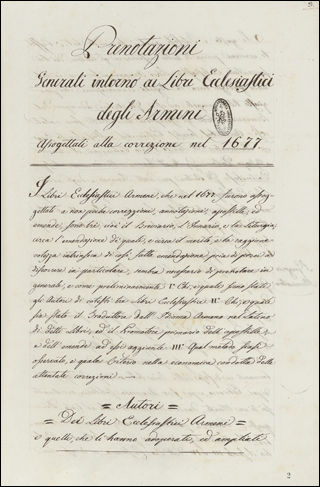 Prenotazioni
Generali intorno ai Libri Ecclesiastici
degli Armeni
Assogettati alla correzione nel 1677
I Libri Ecclesiastici Armeni, che nel 1677 furono assog-
gettati a non poche correzzioni, annotazioni, apostille, ed
emende sono tre, cioè il Breviario, l'Innario, e la Liturgia,
circa l'emendazione di quali, e circa il merito, e la raggione-
volezza intrinseca di essi fatta emendazione pria di
discorrere in particolare, sembra necessario di prenotare in
generale, e come preliminarmente I° Chi, e quali siano stati
gli Autori di cotesti tre Libri Ecclesiastici II° Chi, e quale
sia stato il Traduttore dall'Idioma Armeno nel Latino
di detti libri, ed il Promotore primario dell'apostille,
e dell'emende ad essi aggiunte III° Qual metodo siasi
osservato, e quale Criterio nella economica condotta delle
attentate correzioni
Autori
Dei Libri Ecclesiastici Armeni
e quelli, che li hanno adoperati, ed ampliati
2